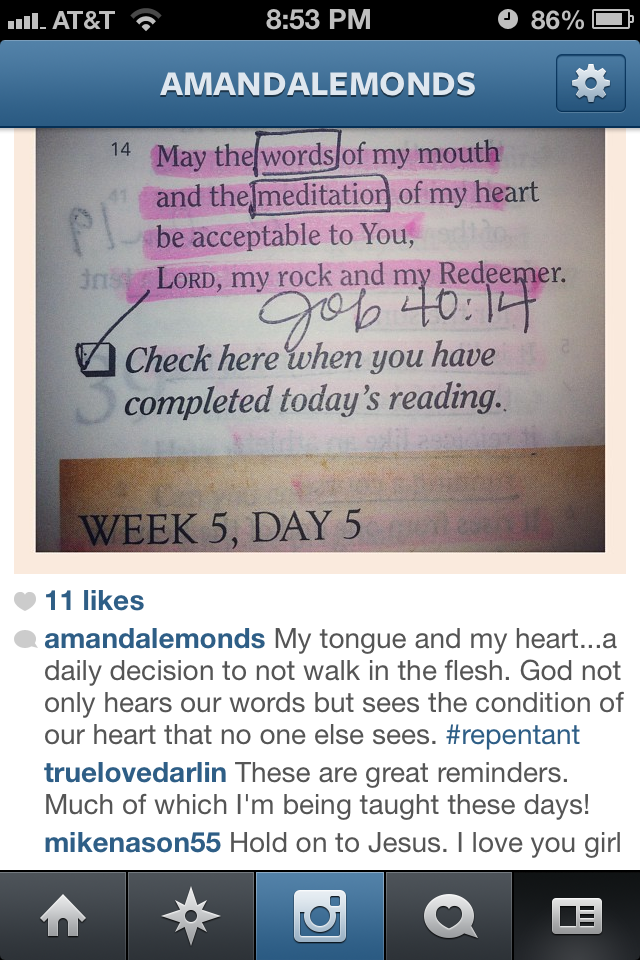 AT&T 8:53 PM 86%
AMANDALEMONDS
14 May the words of my mouth
and the meditation of my heart
be acceptable to You,
LORD, my rock and my Redeemer.
Job 40:14
Check here when you have
completed today's reading.
WEEK 5, DAY 5
11 likes
amandalemonds My tongue and my heart...a
daily decision to not walk in the flesh. God not
only hears our words but sees the condition of
our heart that no one else sees. #repentant
truelovedarlin These are great reminders.
Much of which I'm being taught these days!
mikenason55 Hold on to Jesus. I love you girl